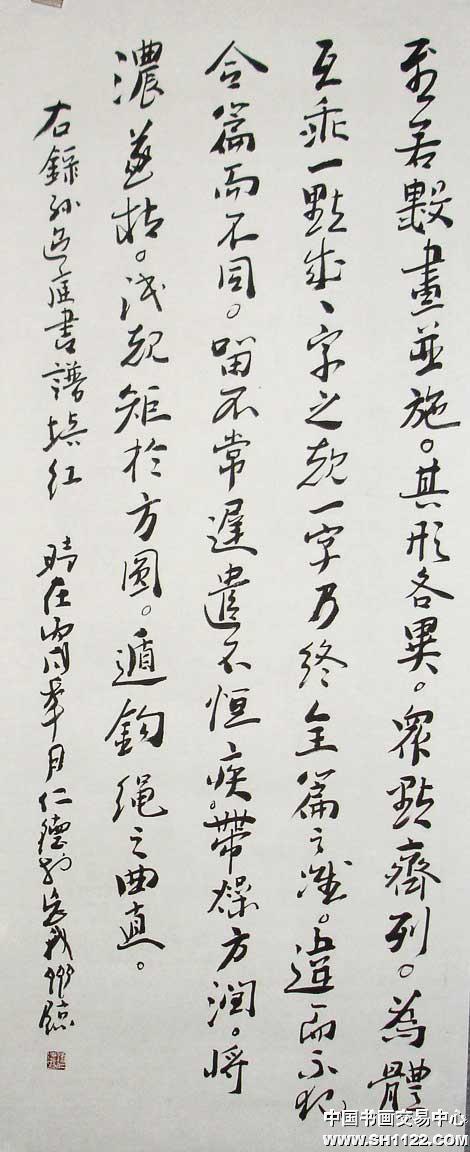 至若數畫並施。其形各異。眾點齊列。為體
互乖一點成、字之規一字乃終全篇之準。違而不犯
合篇而不同。留不常遲遣不恒疾。帶燥方潤。將
濃遂枯。泯規矩於方圓。遁鈎繩之曲直。
右錄孫過庭書譜 時在丙 年 月仁德
中国书画交易中心
www.SH1122.com